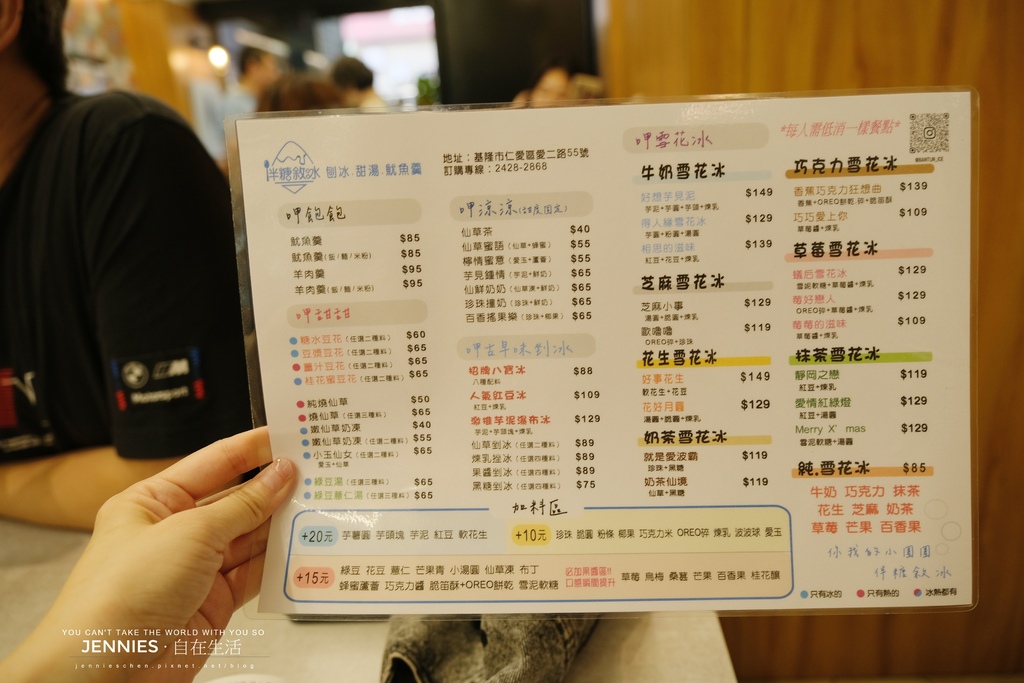 半糖敘冰 刨冰.甜湯.魷魚羹
地址：基隆市仁愛區愛二路55號
訂購專線：2428-2868
呷飽飽
魷魚羹 $85
魷魚羹(飯/麵/米粉) $85
羊肉羹 $95
羊肉羹(飯/麵/米粉) $95
呷甜甜
糖水豆花(任選二種料) $60
豆漿豆花(任選二種料) $65
薑汁豆花(任選二種料) $65
桂花蜜豆花(任選二種料) $65
純燒仙草 $50
燒仙草(任選三種料) $65
嫩仙草奶凍 $40
嫩仙草奶凍(任選二種料) $55
小玉仙女(任選二種料) $65
愛玉+仙草
綠豆湯(任選三種料) $65
綠豆薏仁湯(任選三種料) $65
呷涼涼(甜度固定)
仙草茶 $40
仙草蜜語(仙草+蜂蜜) $55
檸情蜜意(愛玉+蘆薈) $55
芋見鍾情(芋泥+鮮奶) $65
仙鮮奶奶(仙草凍+鮮奶) $65
珍珠撞奶(珍珠+鮮奶) $65
百香搖果樂(珍珠+椰果) $65
呷古早味剉冰
招牌八寶冰 $88
八種配料
人氣紅豆冰 $109
紅豆+煉乳
激推芋泥瀑布冰 $129
芋泥+芋頭塊+煉乳
仙草剉冰(任選二種料) $89
煉乳挫冰(任選四種料) $89
果醬剉冰(任選四種料) $89
黑糖剉冰(任選四種料) $75
呷雪花冰
*每人需低消一樣餐點*
@BANTUN_ICE
牛奶雪花冰
好想芋見泥 $149
芋泥+芋圓+芋頭+煉乳
得人緣雪花冰 $129
芋圓+粉圓+湯圓
相思的滋味 $139
紅豆+花豆+煉乳
芝麻雪花冰
芝麻小事 $129
湯圓+脆圓+煉乳
歐嚕嚕 $119
OREO碎+珍珠
花生雪花冰
好事花生 $149
軟花生+花豆
花好月圓 $129
湯圓+脆圓+煉乳
奶茶雪花冰
就是愛波霸 $119
珍珠+黑糖
奶茶仙境 $119
仙草+黑糖
巧克力雪花冰
香蕉巧克力狂想曲 $139
香蕉+OREO餅乾.碎+脆笛酥
巧巧愛上你 $109
草莓醬+煉乳
草莓雪花冰
蟻后雪花冰 $129
雪泥軟糖+草莓醬+煉乳
莓好戀人 $129
OREO碎+草莓醬+煉乳
莓莓的滋味 $109
草莓醬+煉乳
抹茶雪花冰
靜岡之戀 $119
紅豆+煉乳
愛情紅綠燈 $129
紅豆+湯圓
Merry X' mas $129
雪泥軟糖+湯圓
純.雪花冰 $85
牛奶 巧克力 抹茶
花生 芝麻 奶茶
草莓 芒果 百香果
你我的小團圓
伴糖敘冰
只有冰的 只有熱的 冰熱都有
加料區
+20元 芋薯圓 芋頭塊 芋泥 紅豆 軟花生
+10元 珍珠 脆圓 粉條 椰果 巧克力米 OREO碎 煉乳 波波球 愛玉
+15元 綠豆 花豆 薏仁 芒果青 小湯圓 仙草凍 布丁
蜂蜜蘆薈 巧克力醬 脆笛酥+OREO餅乾 雪泥軟糖
必加果醬區!!
口感瞬間提升
草莓 烏梅 桑葚 芒果 百香果 桂花釀
YOU CAN'T TAKE THE WORLD WITH YOU SO
JENNIES · 自在生活
jennieschen.pixnet.net/blog